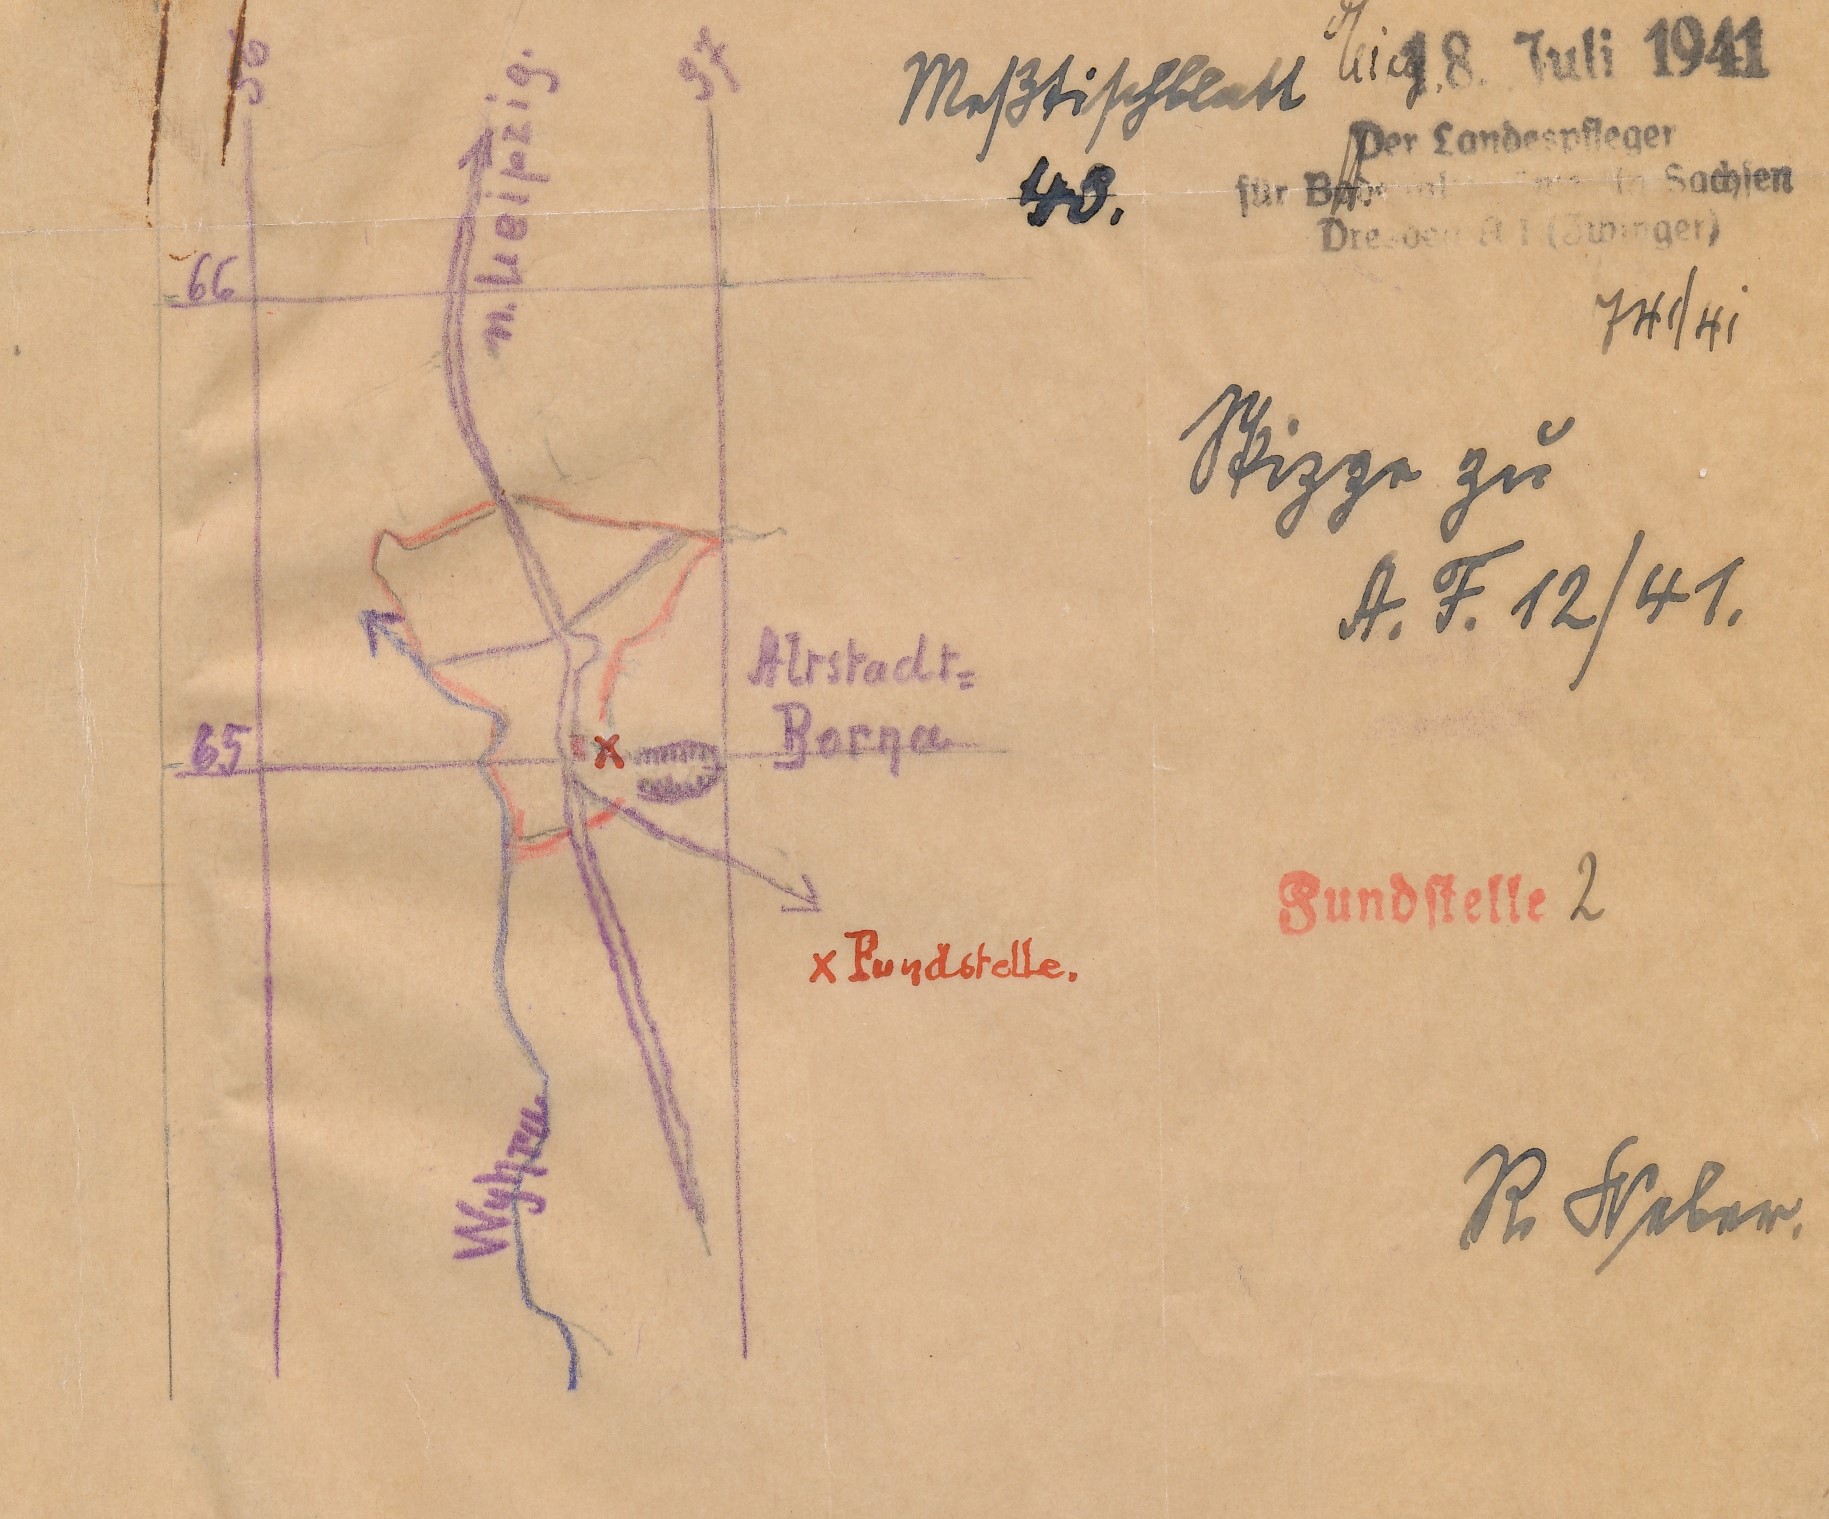 36
97
n. Leipzig.
Meßtischblatt
43.
18. Juli 1941
Der Landespfleger
für Sachsen
Dresden A 1 (Zwinger)
741/41
66
Skizze zu
A. F. 12/41.
Altstadt=
Borna
65
Fundstelle 2
x Fundstelle.
Wyhra
R. Weber.